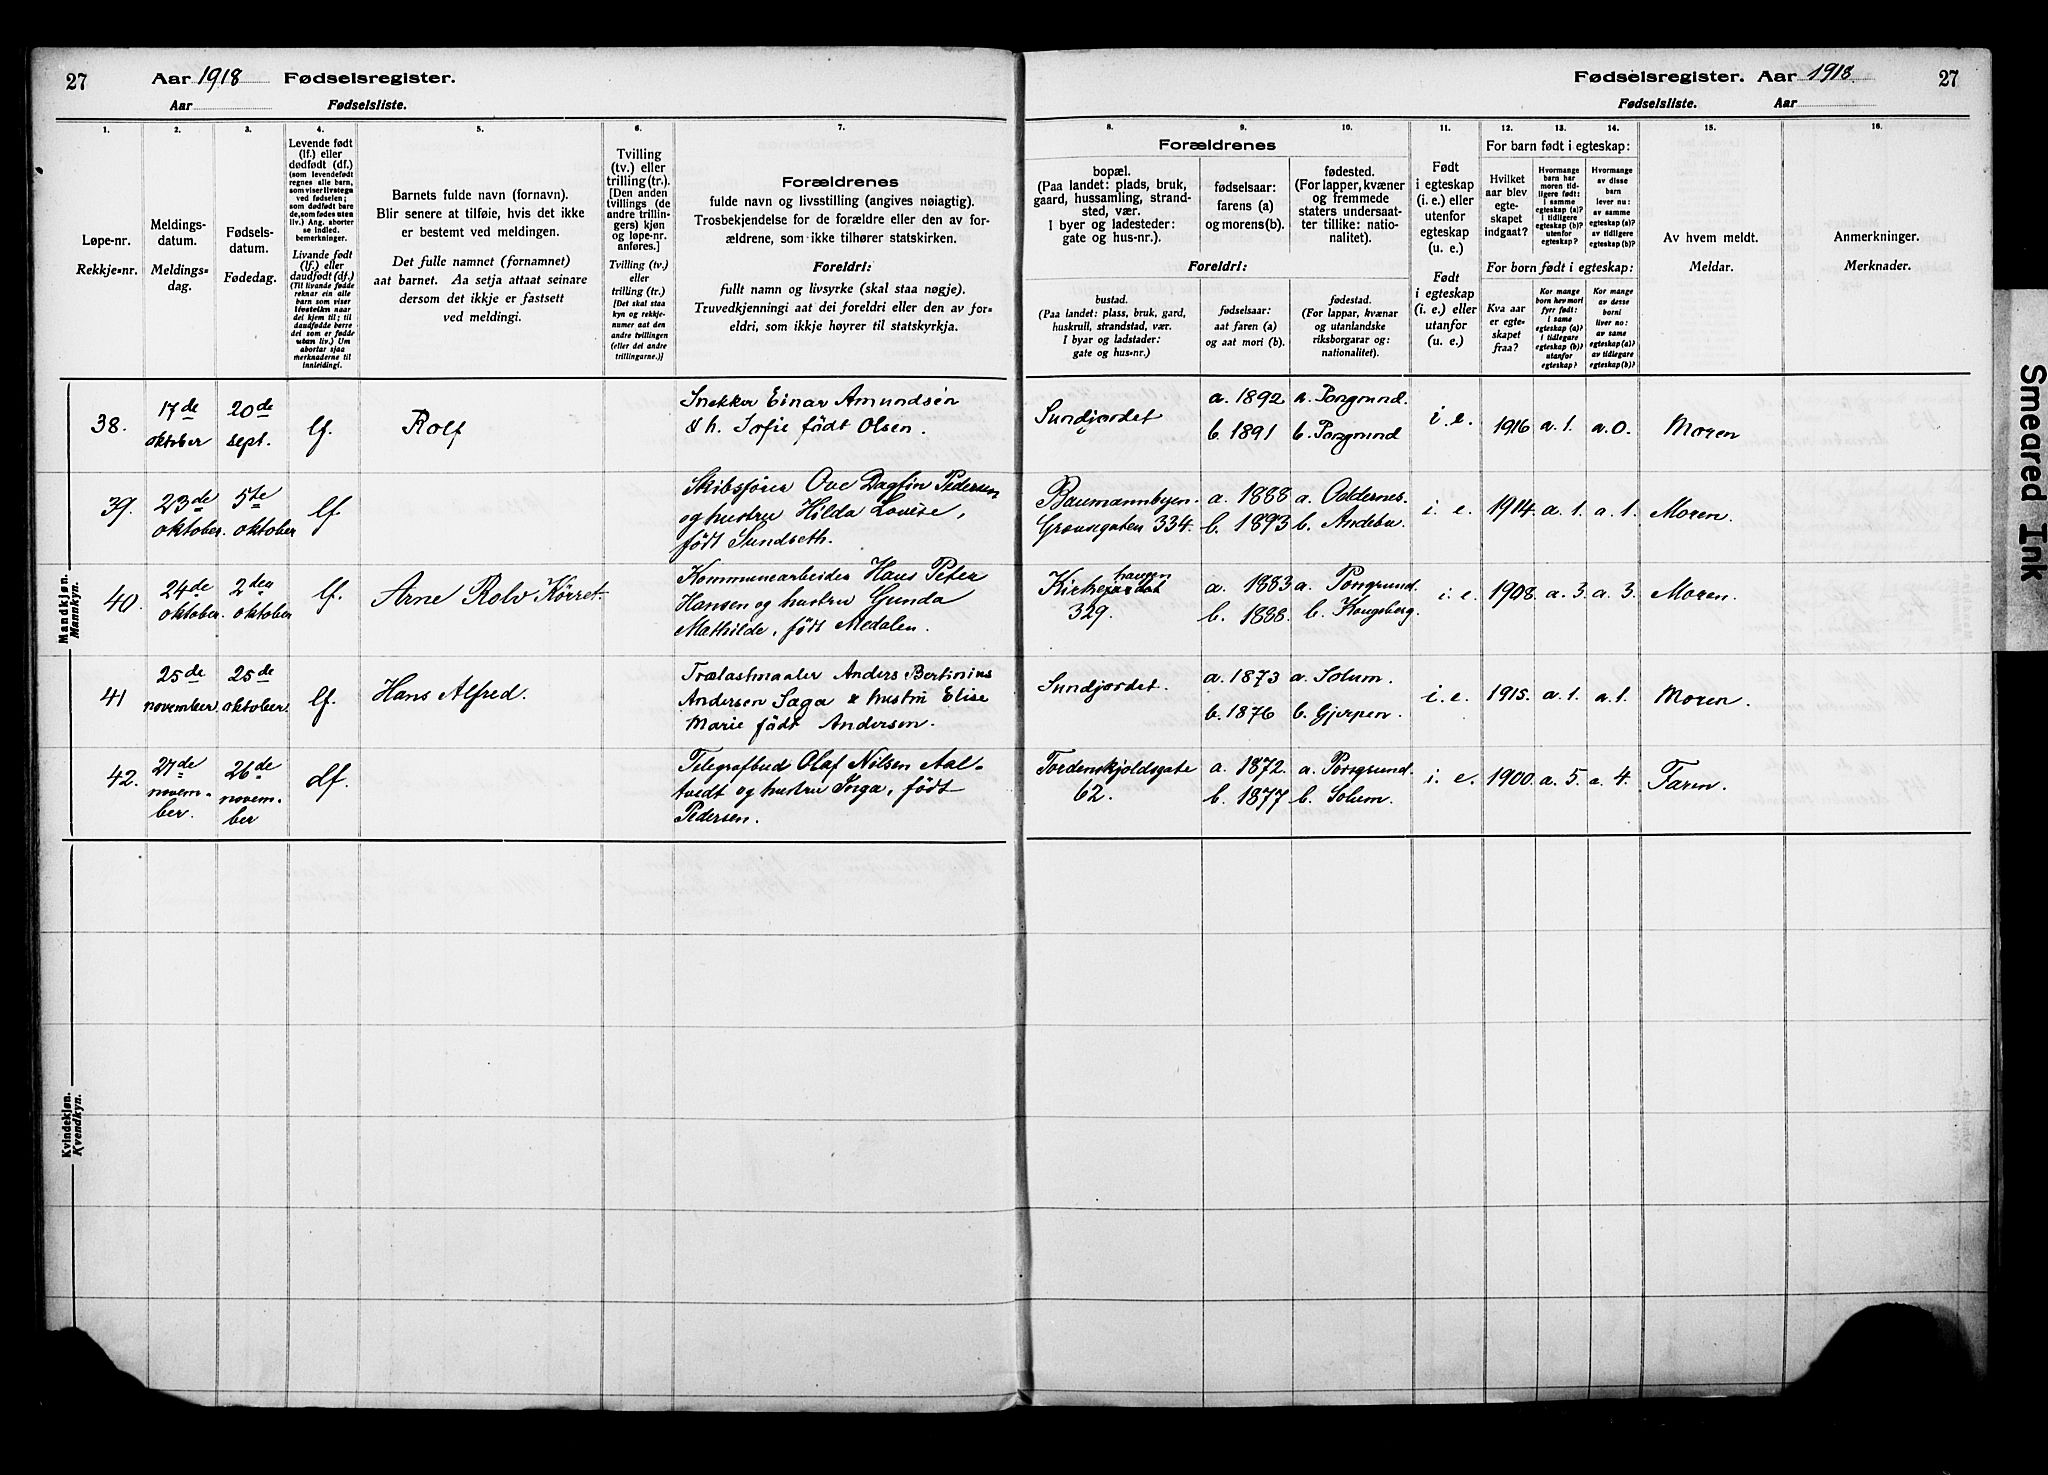 27 Aar 1918 Fødselsregister.
Aar Fødselsliste.
Fødselsregister. Aar 1918. 27
Fødselsliste. Aar
1. 2. 3. 4. 5. 6. 7.
8. 9. 10. 11. 12. 13. 14. 15. 16.
Løpe-nr.
Rekkje-nr.
Meldings-
datum.
Meldings-
dag.
Fødsels-
datum.
Fødedag.
Levende født
(lf.) eller
dødfødt (df.)
(som levendefødt
regnes alle barn,
som viser livstegn
ved fødselen;
som dødfødt bare
de, som fødes uten
liv.) Ang. aborter
se indled.
bemerkninger.
Livande født
(lf.) eller
daudfødt (df.)
(Til livande fødde
reknar ein alle
barn som viser
livsteikn naar
dei kjem til; til
daudfødde berre
dei som er fødde
utan liv.) Um
abortar sjaa
merknaderne til
innleiding!.
Barnets fulde navn (fornavn).
Blir senere at tilføie, hvis det ikke
er bestemt ved meldingen.
Det fulle namnet (fornamnet)
aat barnet. Aa setja attaat seinare
dersom det ikkje er fastsett
ved meldingi.
Tvilling
(tv.) eller
trilling (tr.).
[Den anden
tvillings (de
andre trillin-
gers) kjøn
og løpe-nr.
anføres.]
Tvilling (tv.)
eller
trilling (tr.)
[Det skal staa
kyn og rekkje-
numer aat den
andre tvillingen
(eller dei andre
trillingarne.)]
Forældrenes
fulde navn og livsstilling (angives nøiagtig).
Trosbekjendelse for de forældre eller den av for-
ældrene, som ikke tilhører statskirken.
Foreldri:
fullt namn og livsyrke (skal staa nøgje).
Truvedkjenningi aat dei foreldri eller den av for-
eldri, som ikkje høyrer til statskyrkja.
Forældrenes
bopæl.
(Paa landet: plads, bruk,
gaard, hussamling, strand-
sted, vær.
I byer og ladesteder:
gate og hus-nr.).
fødselsaar:
farens (a)
og morens (b).
fødested.
(For lapper, kvæner
og fremmede
staters undersaat-
ter tillike: natio-
nalitet).
Foreldri:
bustad.
(Paa landet: plass, bruk, gard,
huskrull, strandstad, vær.
I byar og ladstader:
gate og hus-nr.)
fødselsaar:
aat faren (a)
og aat mori (b).
fødestad.
(For lappar, kvænar
og utanlandske
riksborgarar og:
nationalitet).
Født
i egteskap
(i. e.) eller
utenfor
egteskap
(u. e.)
Født
i egteskap
(i. e.) eller
utanfor
(u. e.)
For barn født i egteskap:
Hvilket
aar blev
egte-
skapet
indgaat?
Hvormange
barn har
moren tid-
ligere født:
i samme
egteskap (a)?
i tidligere
egteskap (b)?
utenfor
egteskap?
Hvormange
av disse
barn
lever nu:
av samme
egteskap (a)?
av tidligere
egteskap (b)?
For born født i egteskap:
Kva aar
er egte-
skapet
fraa?
Kor mange
born hev mori
fyrr født:
i same
egteskap (a)?
i tidlegare
egteskap (b)?
utanfor
egteskap?
Kor mange
av desse
borni
liver no:
av same
egteskap (a)?
av tidlegare
egteskap (b)?
Av hvem meldt.
Meldar.
Anmerkninger.
Merknader.
Mandkjøn.
Mannkyn.
38. 17de oktober 20de sept. lf. Rolf
Snekker Einar Amundsen
& h. Sofie født Olsen.
Sundjordet a. 1892 a. Porsgrund.
b. 1891 b. Porsgrund
i. e. 1916 a. 1. a. 0. Moren
39. 23de oktober. 5te oktober lf.
Skibsfører Ove Dagfin Pedersen
og hustru Hilda Lovise,
født Sundseth.
Baumannbyen. a. 1888 a. Oddernes.
Gravagaten 334. b. 1893 b. Andebu.
i. e. 1914. a. 1. a. 1. Moren.
40. 24de oktober. 2den oktober lf. Arne Rolv Körret.
Kommunearbeider Hans Peter
Hansen og hustru Gunda
Mathilde, født Medalen.
Kirkehaugen
329.
a. 1883 a. Porsgrund.
b. 1888. b. Kongsberg.
i. e. 1908. a. 3. a. 3. Moren.
41 25de november. 25de oktober. lf. Hans Alfred.
Trælastmaaler Anders Bertinius
Andersen Saga & hustru Elise
Marie født Andersen.
Sundjordet. a. 1873 a. Solum.
b. 1876 b. Gjerpen.
i. e. 1915. a. 1. a. 1. Moren.
42. 27de novem-
ber. 26de novem-
ber df.
Telegrafbud Olaf Nilsen Aal-
tvedt og hustru Inga, født
Pedersen.
Tordenskjoldsgate
62.
a. 1872. a. Porsgrund.
b. 1877 b. Solum.
i. e. 1900. a. 5. a. 4. Faren.
Kvindekjøn.
Kvendkyn.
Smeared Ink